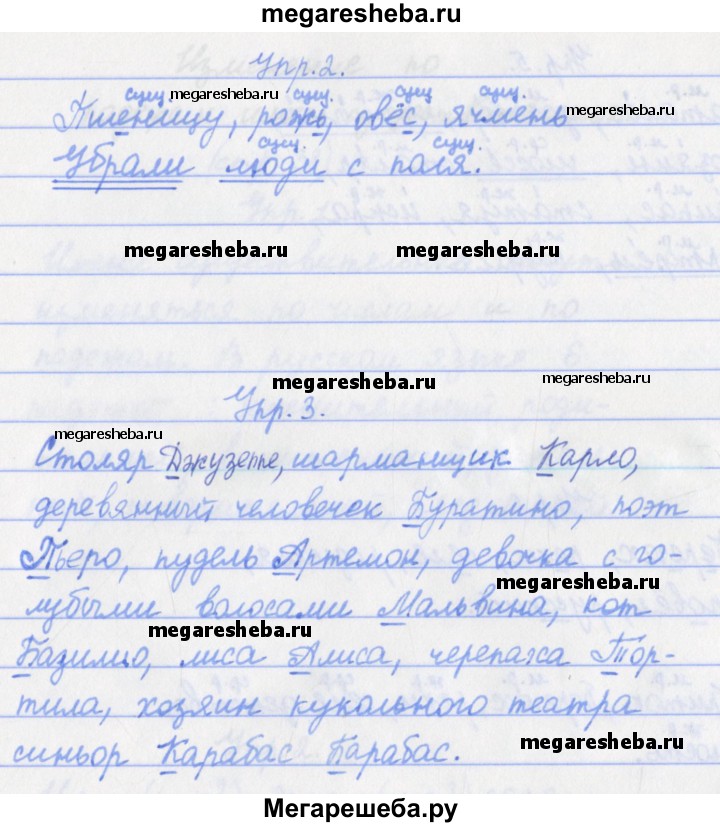 megaresheba.ru
Упр. 2.
сущ. сущ. сущ. сущ.
megaresheba.ru
megaresheba.ru
Пшеницу, рожь, овёс, ячмень
сущ. сущ.
Убрали люди с поля.
megaresheba.ru megaresheba.ru
megaresheba.ru
megaresheba.ru
Упр. 3.
megaresheba.ru
Столяр Джузеппе, шарманщик Карло,
деревянный человечек Буратино, поэт
Пьеро, пудель Артемон, девочка с го-
megaresheba.ru
лубыми волосами Мальвина, кот
megaresheba.ru
Базилио, лиса Алиса, черепаха Тор-
тила, хозяин кукольного театра
megaresheba.ru
синьор Карабас Барабас.
Мегарешеба.ру